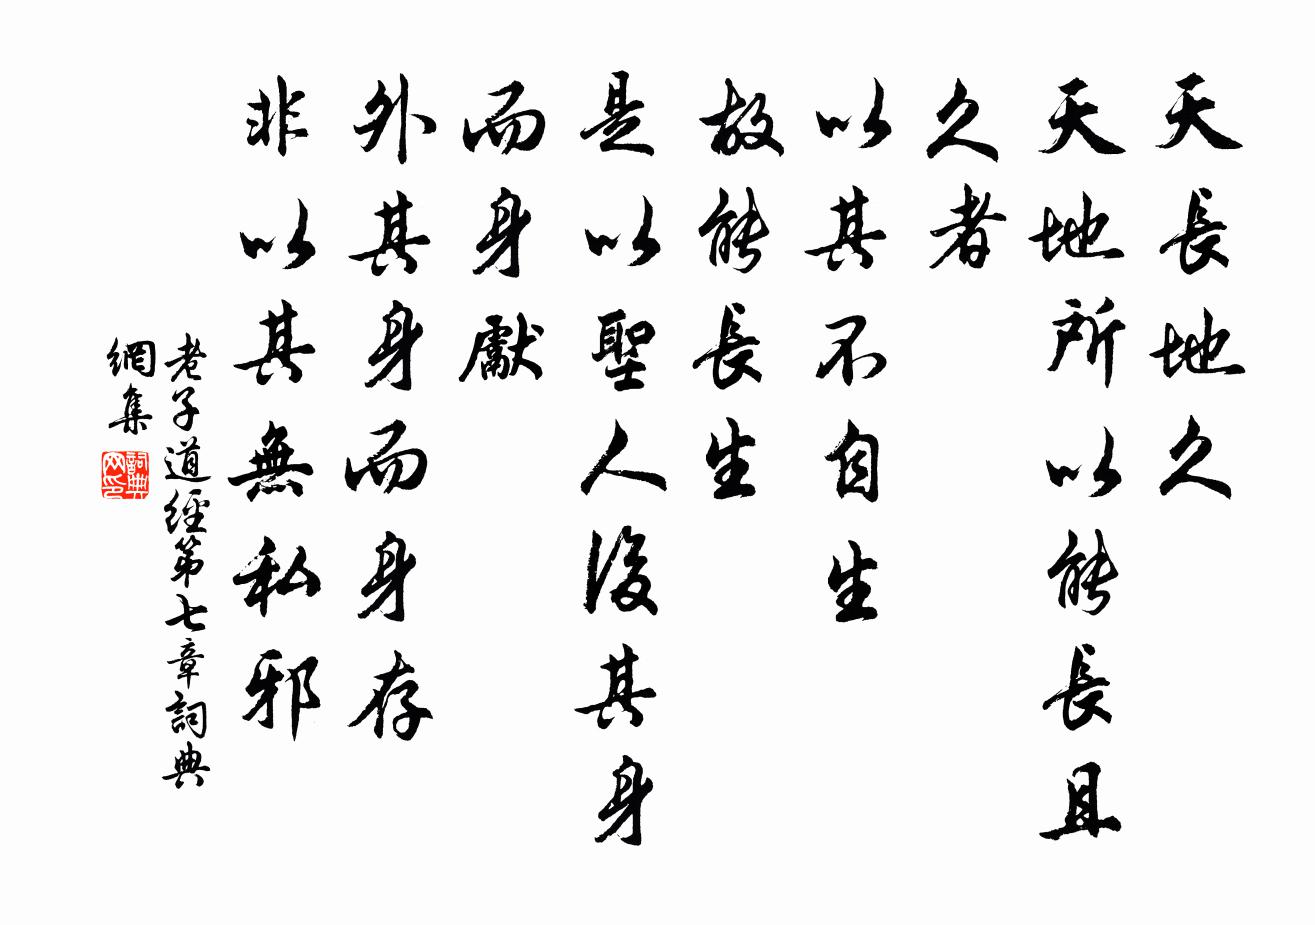 天長地久
天地所以能長且
久者
以其不自生
故能長生
是以聖人後其身
而身獻
外其身而身存
非以其無私邪
老子道經第七章詞典
網集
詞典
网印